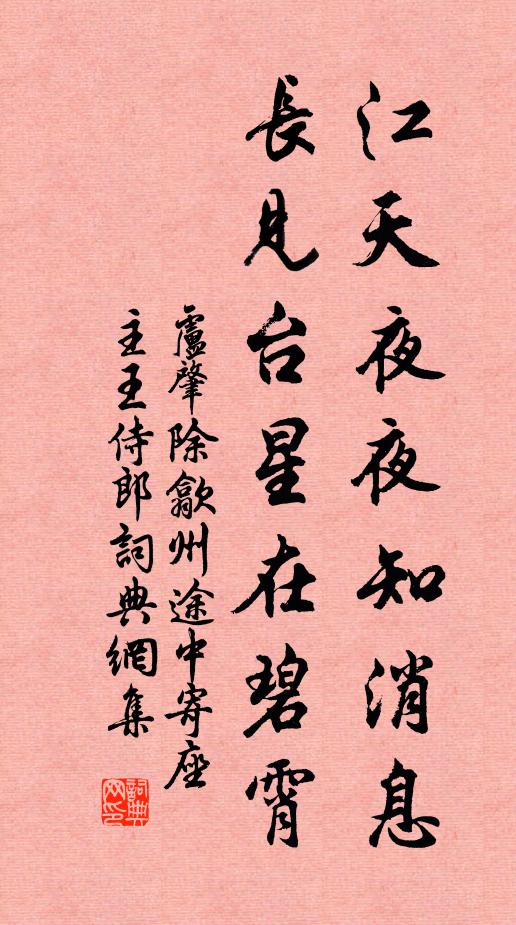 江天夜夜知消息
長見台星在碧霄
盧肇除歙州途中寄座
主王侍郎詞典網集
詞典
网印